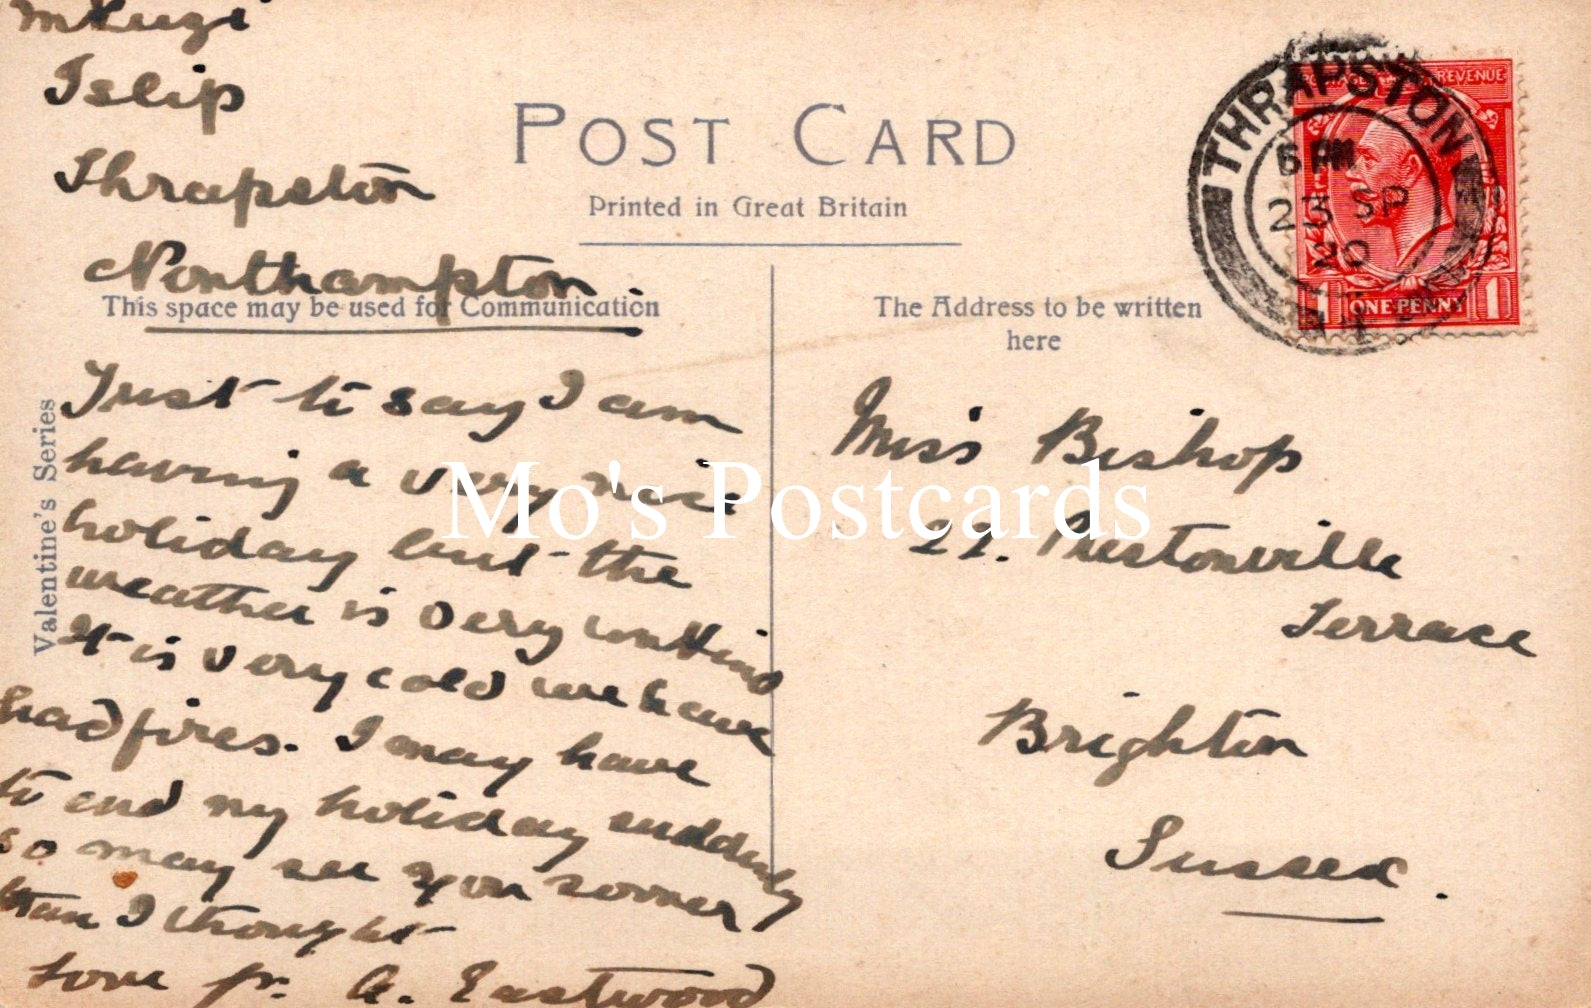 Islip
Thrapston
Northampton
POST CARD
Printed in Great Britain
This space may be used for Communication
The Address to be written
here
Valentine's Series
THRAPSTON
6 PM
23 SP
20
POSTAGE REVENUE
1 ONE PENNY 1
Just to say I am
having a very nice
holiday but the
weather is very
It is very cold we have
had fires. I may have
to end my holiday suddenly
so may see you sooner
than I thought
Love fr. A. Eastwood
Miss Bishop
22. Prestonville
Terrace
Brighton
Sussex.
Mo's Postcards